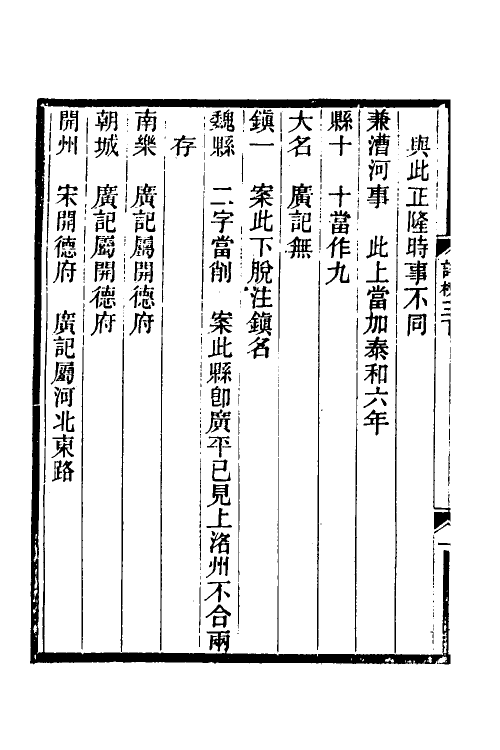 與此正隆時事不同
兼漕河事　此上當加泰和六年
縣十　十當作九
大名　廣記無
鎮一　案此下脫注鎮名
魏縣　二字當削　案此縣卽廣平已見上洺州不合兩
存
南樂　廣記屬開德府
朝城　廣記屬開德府
開州　宋開德府　廣記屬河北東路